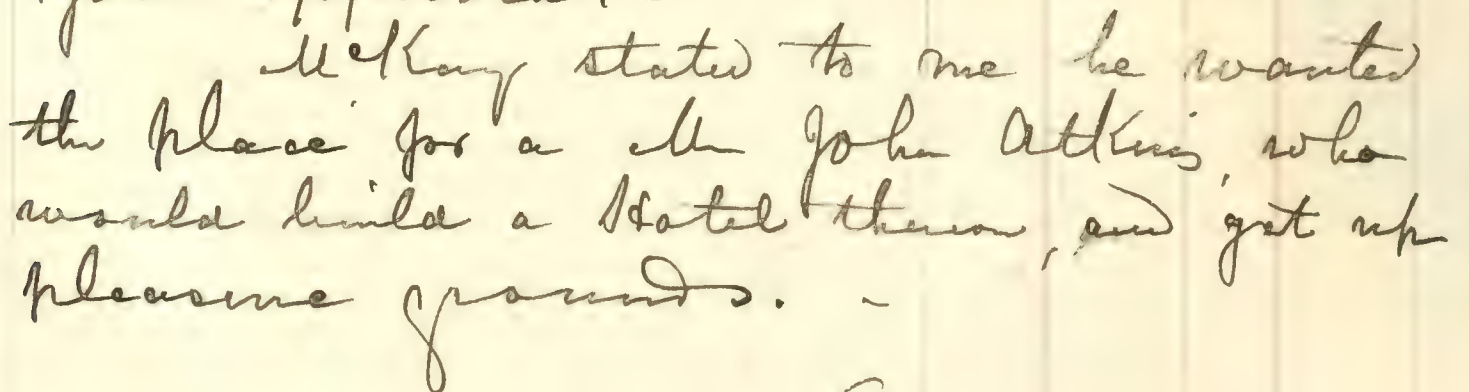 McKay stated to me he wanted
the place for a Mr John Atkins, who
would build a Hotel thereon, and get up
pleasure grounds. -